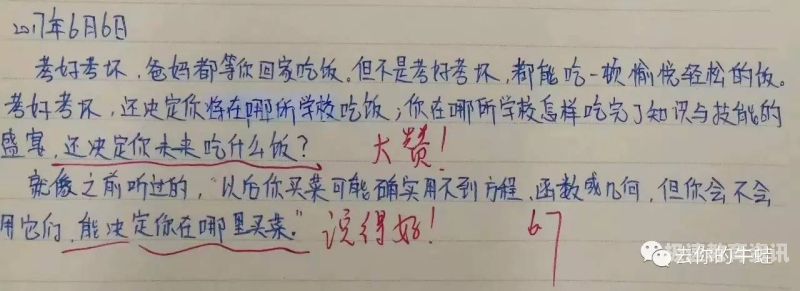 2017年6月6日
考好考坏，爸妈都等你回家吃饭。但不是考好考坏，都能吃一顿愉悦轻松的饭。
考好考坏，还决定你将在哪所学校吃饭；你在哪所学校怎样吃完了知识与技能的
盛宴，还决定你未来吃什么饭？ 大赞！
就像之前听过的，“以后你买菜可能确实用不到方程、函数或几何，但你会不会
用它们，能决定你在哪里买菜。” 说得好！ 67
去你的牛蛙